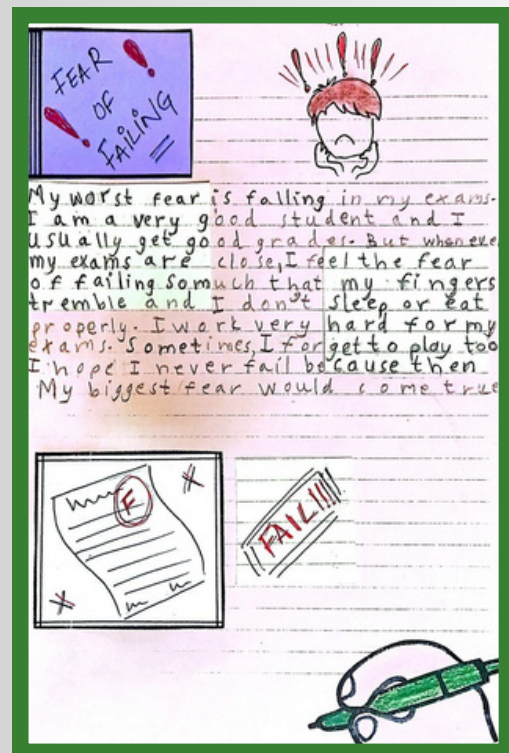 FEAR
OF
FAILING
My worst fear is falling in my exams.
I am a very good student and I
usually get good grades. But wheneve
my exams are close, I feel the fear
of failing so much that my fingers
tremble and I don't sleep or eat
properly. I work very hard for my
exams. Sometimes, I forget to play too
I hope I never fail because then
My biggest fear would come true
F
FAIL!!!